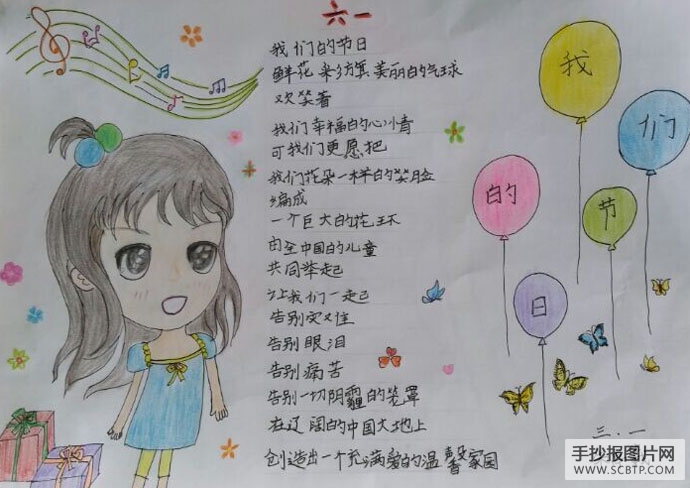 六一
我们的节日
鲜花 彩旗 美丽的气球
欢笑着
我们幸福的心情
可我们更愿把
我们花朵一样的笑脸
编成
一个巨大的花环
由全中国的儿童
共同举起
让我们一起
告别灾难
告别眼泪
告别病苦
告别一切阴霾的笼罩
在辽阔的中国大地上
创造出一个充满爱的温馨家园
我
们
的
节
日
三.一
手抄报图片网
WWW.SCBTP.COM